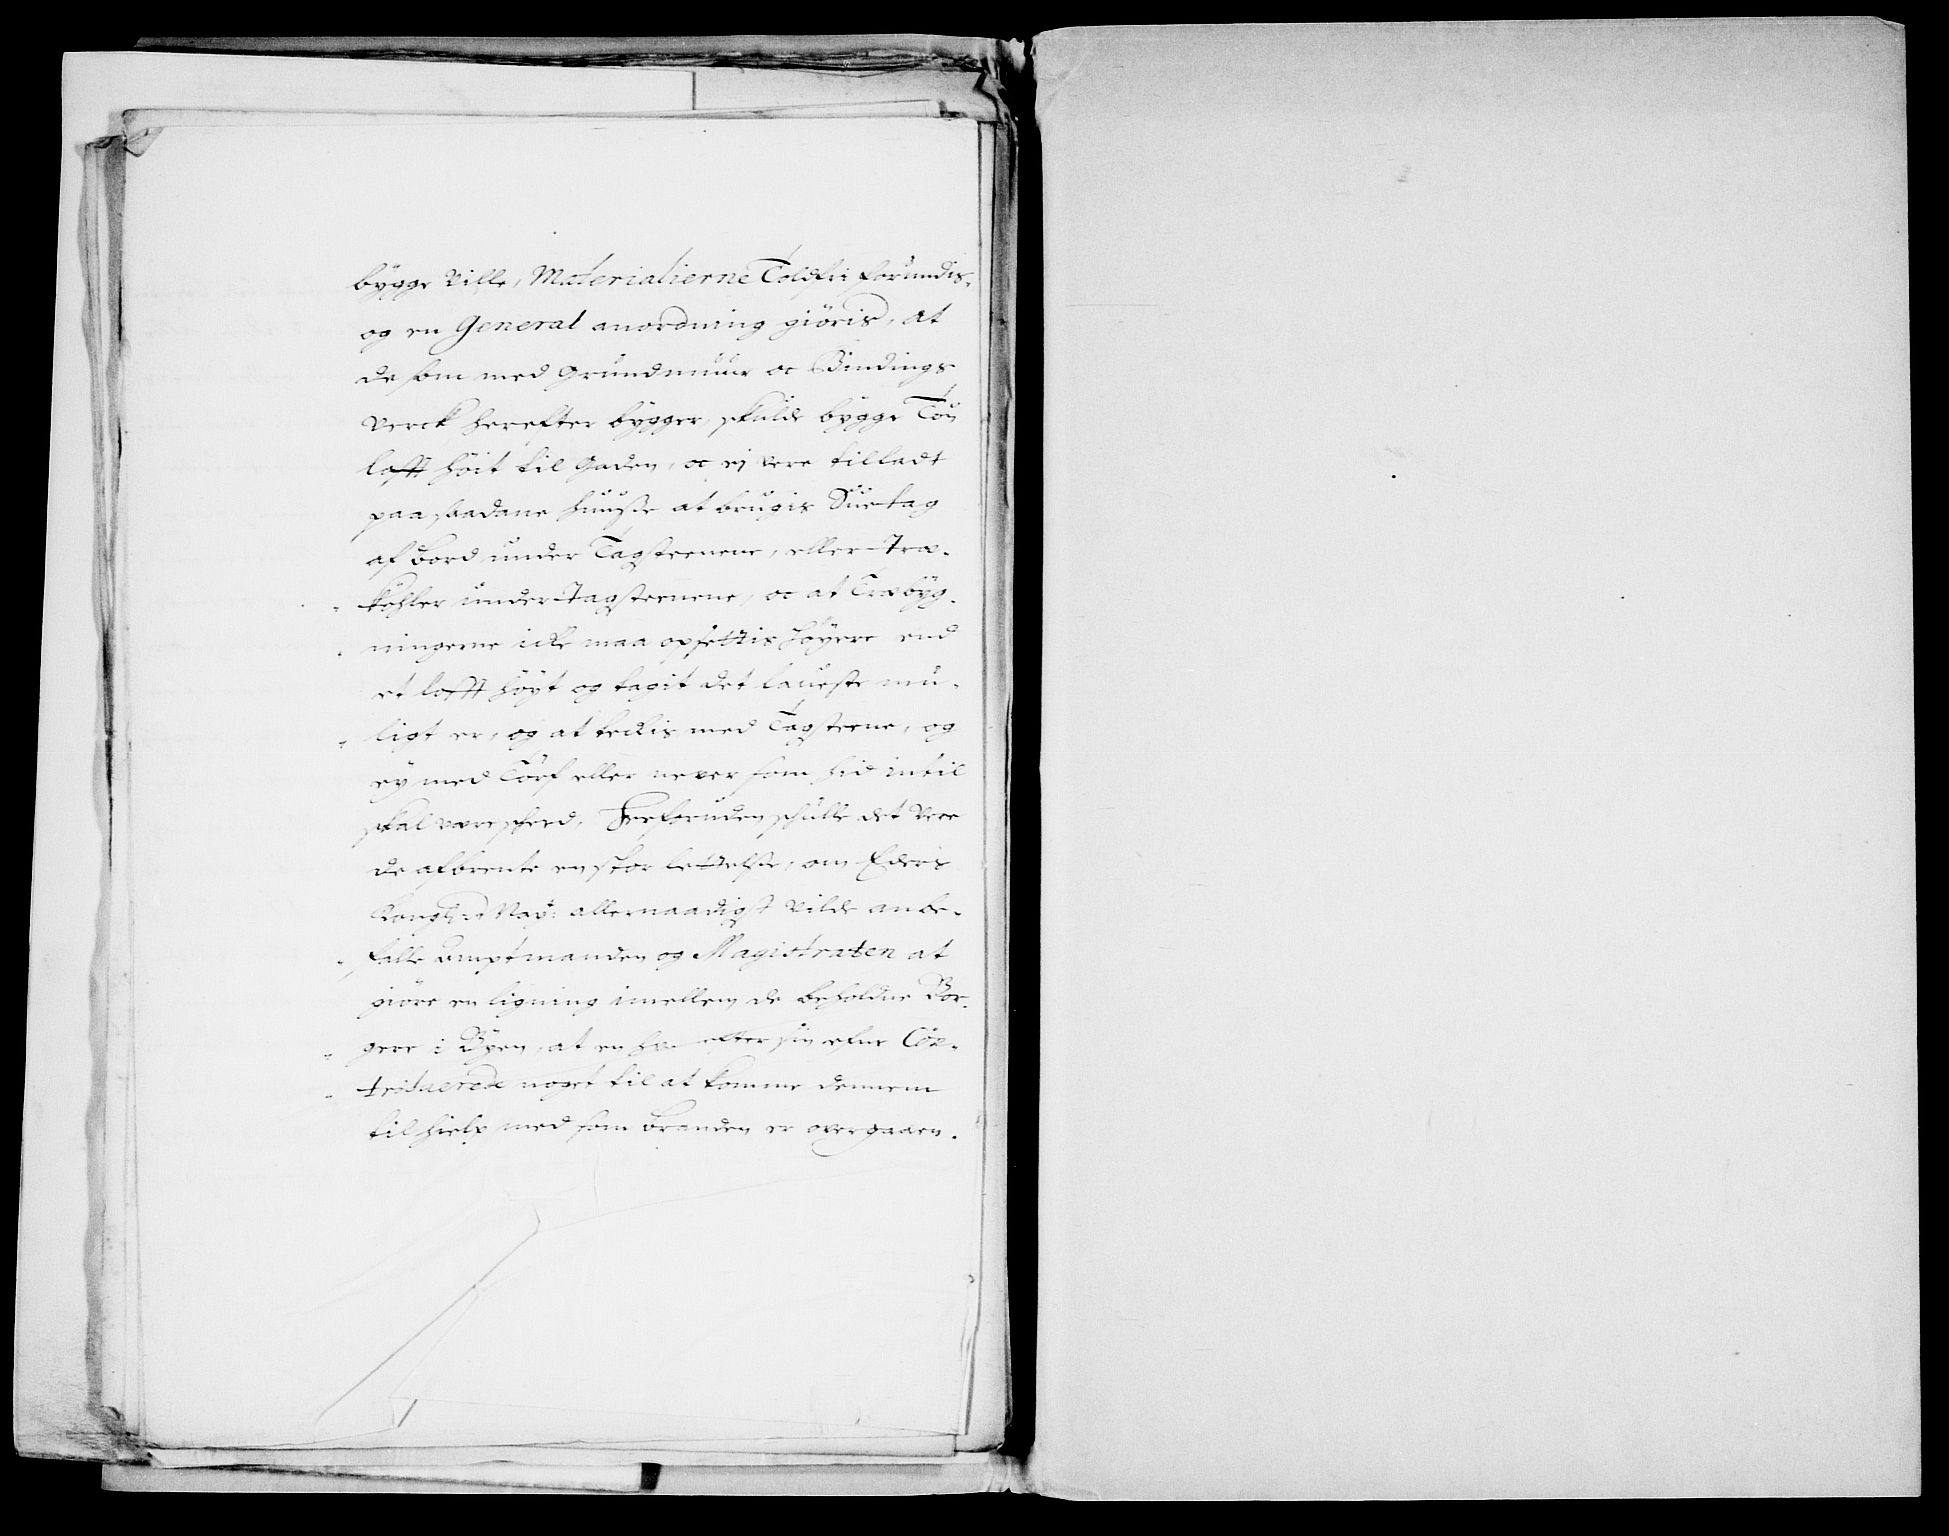 bygge ville, Materialierne Toldfri forundis,
og en General anordning giöris, at
de som med Grundmuur oc Bindings
verck herefter bygger, skulde bygge Tou
lofft höit til Gaden, oc ej vere tilladt
paa saadane huuße at brugis Suetag
af bord under Tagsteenene, eller Træ-
kehler under Tagsteenene, oc at Træbyg-
ningerne icke maa opsettis høyere end
et lofft høyt og taget det laueste mu-
ligt er, og at teckis med Tagsteene, og
ey med Törf eller never som hid intil
skal være scheed. Herforuden schulle det vere
de afbrente en stor lettelße, om Eders
Kongl: May: allernaadigst vilde anbe-
falle Amptmanden og Magistraten at
giöre en ligning imellem de beholdne Bor-
gere i Byen, at en hver efter sin efne Con-
tribuerede noget til at komme dennem
til hielp med som branden er overgaaen.